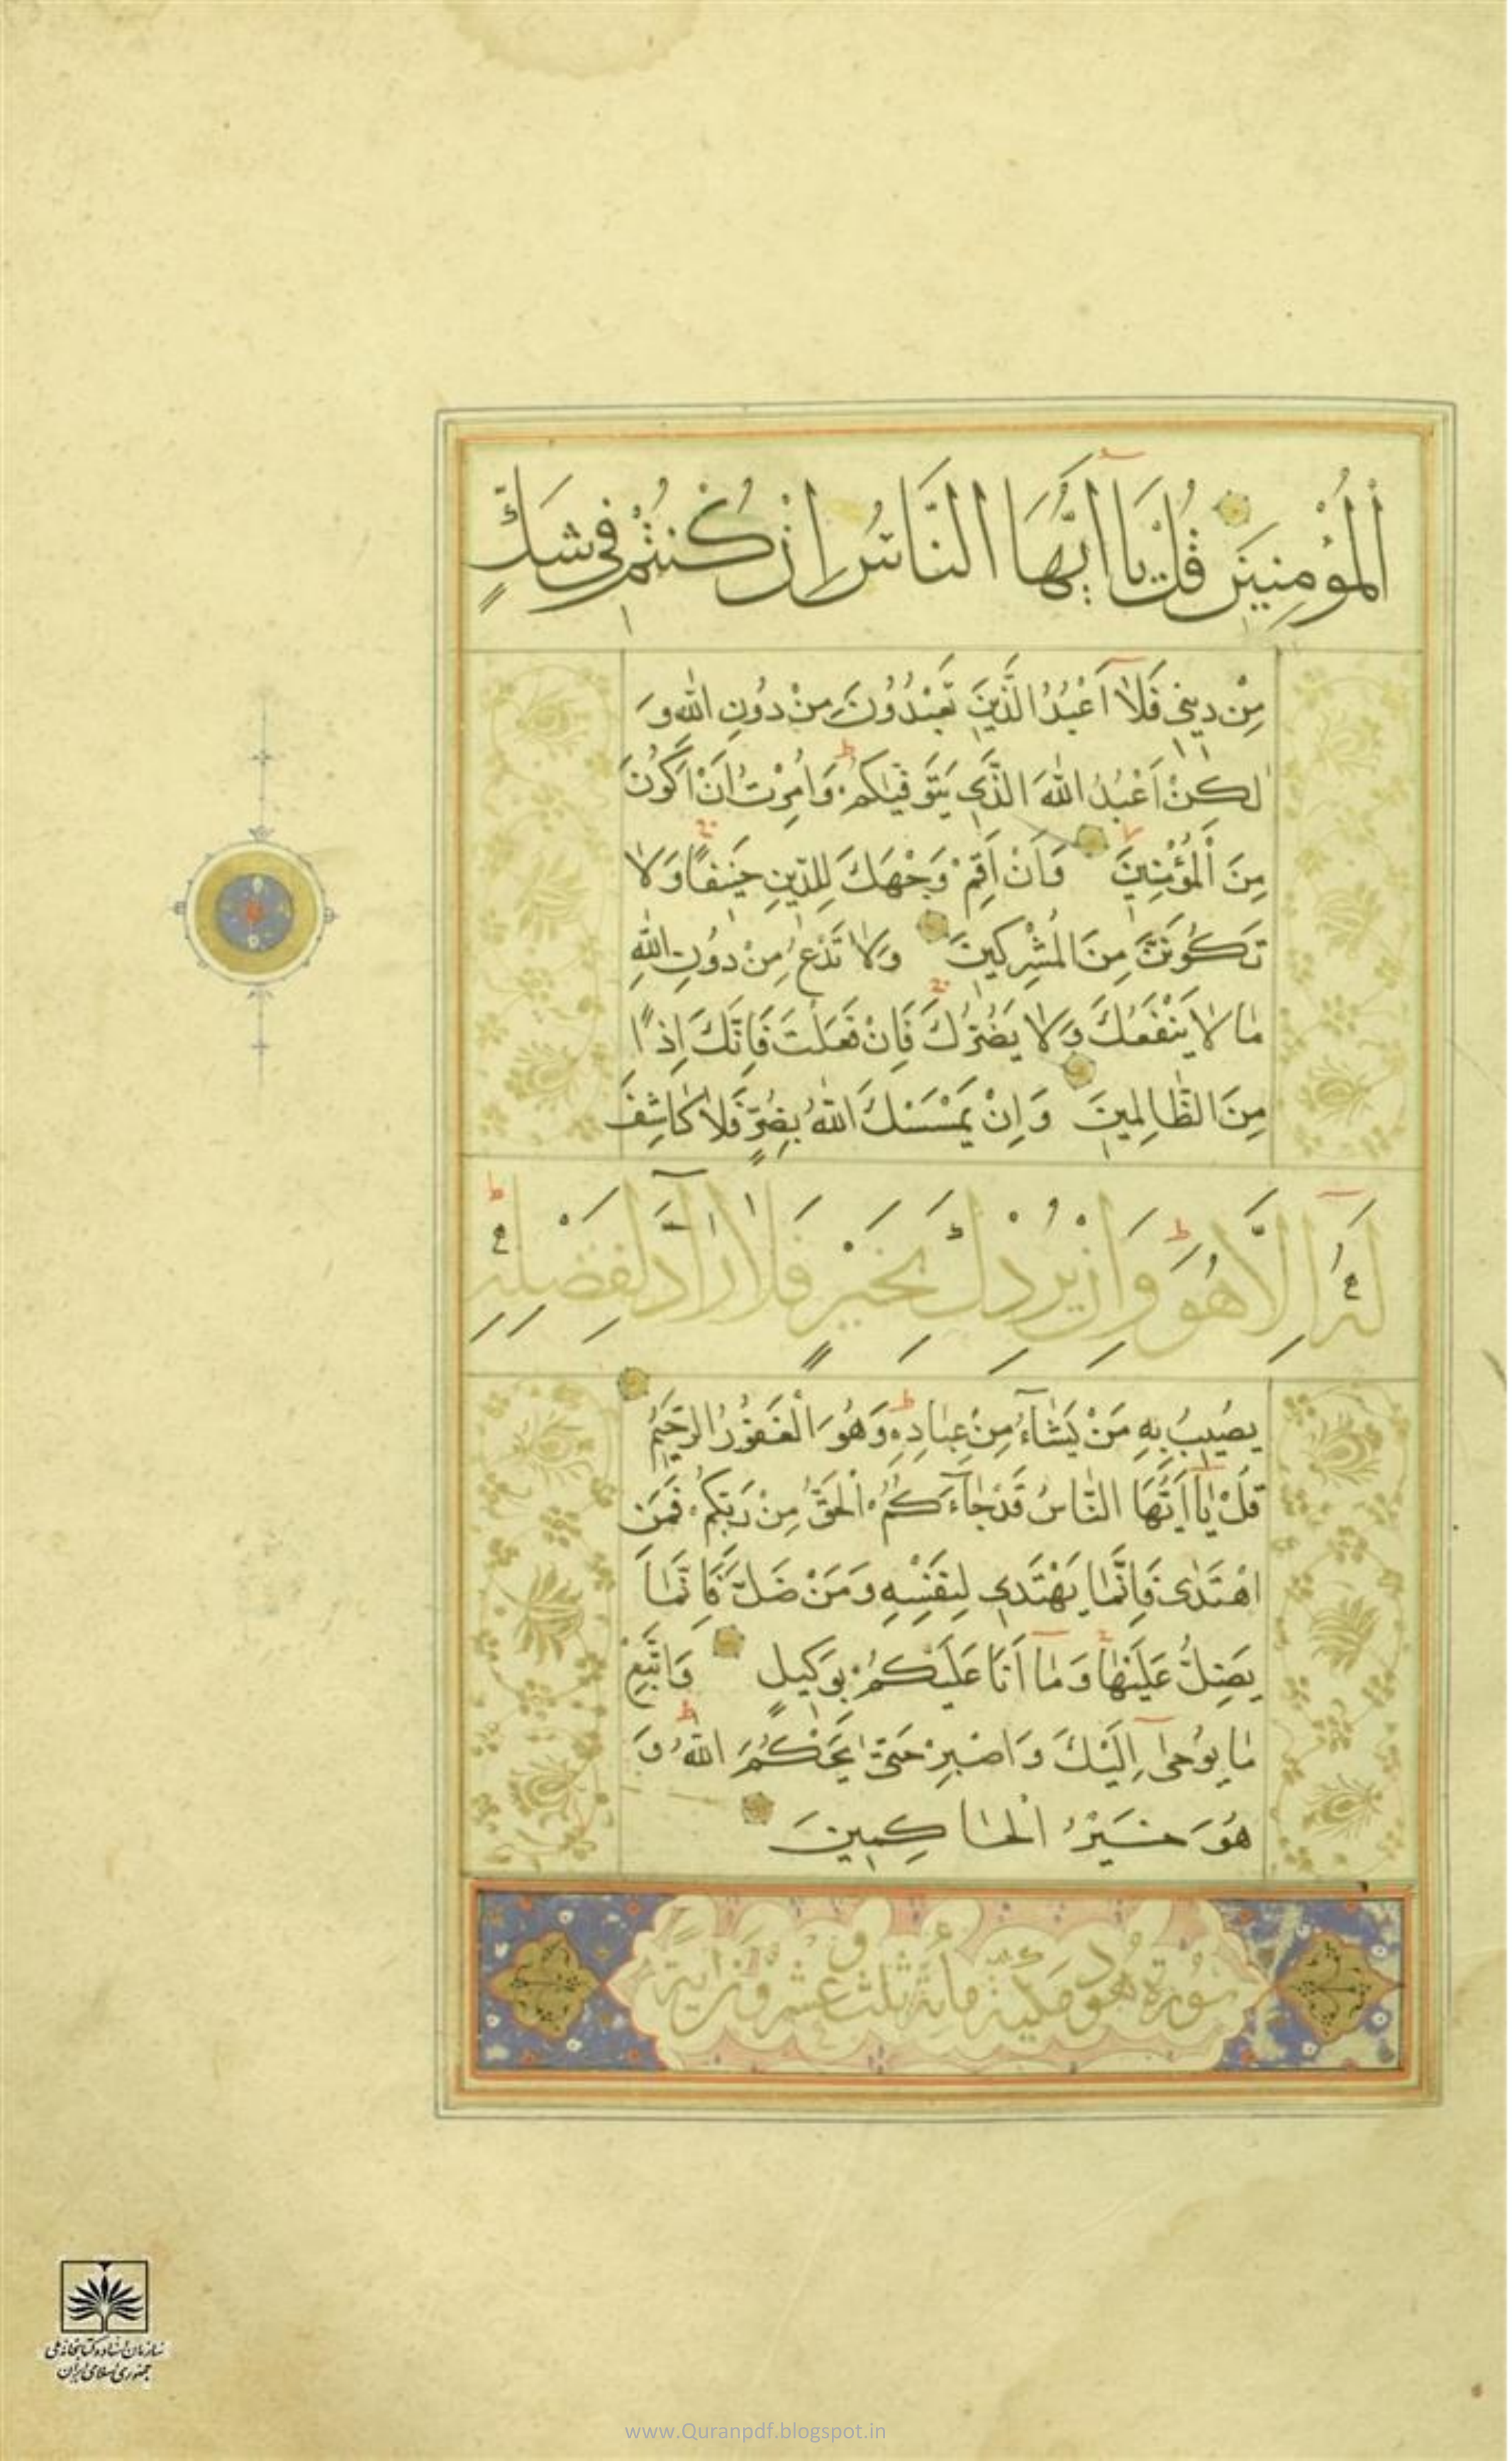 الْمُؤْمِنِينَ قُلْ يَا أَيُّهَا النَّاسُ إِنْ كُنْتُمْ فِي شَكٍّ
مِنْ دِينِي فَلَا أَعْبُدُ الَّذِينَ تَعْبُدُونَ مِنْ دُونِ اللَّهِ وَ
لَكِنْ أَعْبُدُ اللَّهَ الَّذِي يَتَوَفَّيكُمْ وَأُمِرْتُ أَنْ أَكُونَ
مِنَ الْمُؤْمِنِينَ وَأَنْ أَقِمْ وَجْهَكَ لِلدِّينِ حَنِيفًا وَلَا
تَكُونَنَّ مِنَ الْمُشْرِكِينَ وَلَا تَدْعُ مِنْ دُونِ اللَّهِ
مَا لَا يَنْفَعُكَ وَلَا يَضُرُّكَ فَإِنْ فَعَلْتَ فَإِنَّكَ إِذًا
مِنَ الظَّالِمِينَ وَإِنْ يَمْسَسْكَ اللَّهُ بِضُرٍّ فَلَا كَاشِفَ
لَهُ إِلَّا هُوَ وَإِنْ يُرِدْكَ بِخَيْرٍ فَلَا رَادَّ لِفَضْلِهِ
يُصِيبُ بِهِ مَنْ يَشَاءُ مِنْ عِبَادِهِ وَهُوَ الْغَفُورُ الرَّحِيمُ
قُلْ يَا أَيُّهَا النَّاسُ قَدْ جَاءَكُمُ الْحَقُّ مِنْ رَبِّكُمْ فَمَنِ
اهْتَدَى فَإِنَّمَا يَهْتَدِي لِنَفْسِهِ وَمَنْ ضَلَّ فَإِنَّمَا
يَضِلُّ عَلَيْهَا وَمَا أَنَا عَلَيْكُمْ بِوَكِيلٍ وَاتَّبِعْ
مَا يُوحَى إِلَيْكَ وَاصْبِرْ حَتَّى يَحْكُمَ اللَّهُ وَ
هُوَ خَيْرُ الْحَاكِمِينَ
سُورَةُ هُود مَكِّيَّة مائة ثلث وعشرون اية
سازمان اسناد و کتابخانه ملی
جمهوری اسلامی ایران
www.Quranpdf.blogspot.in